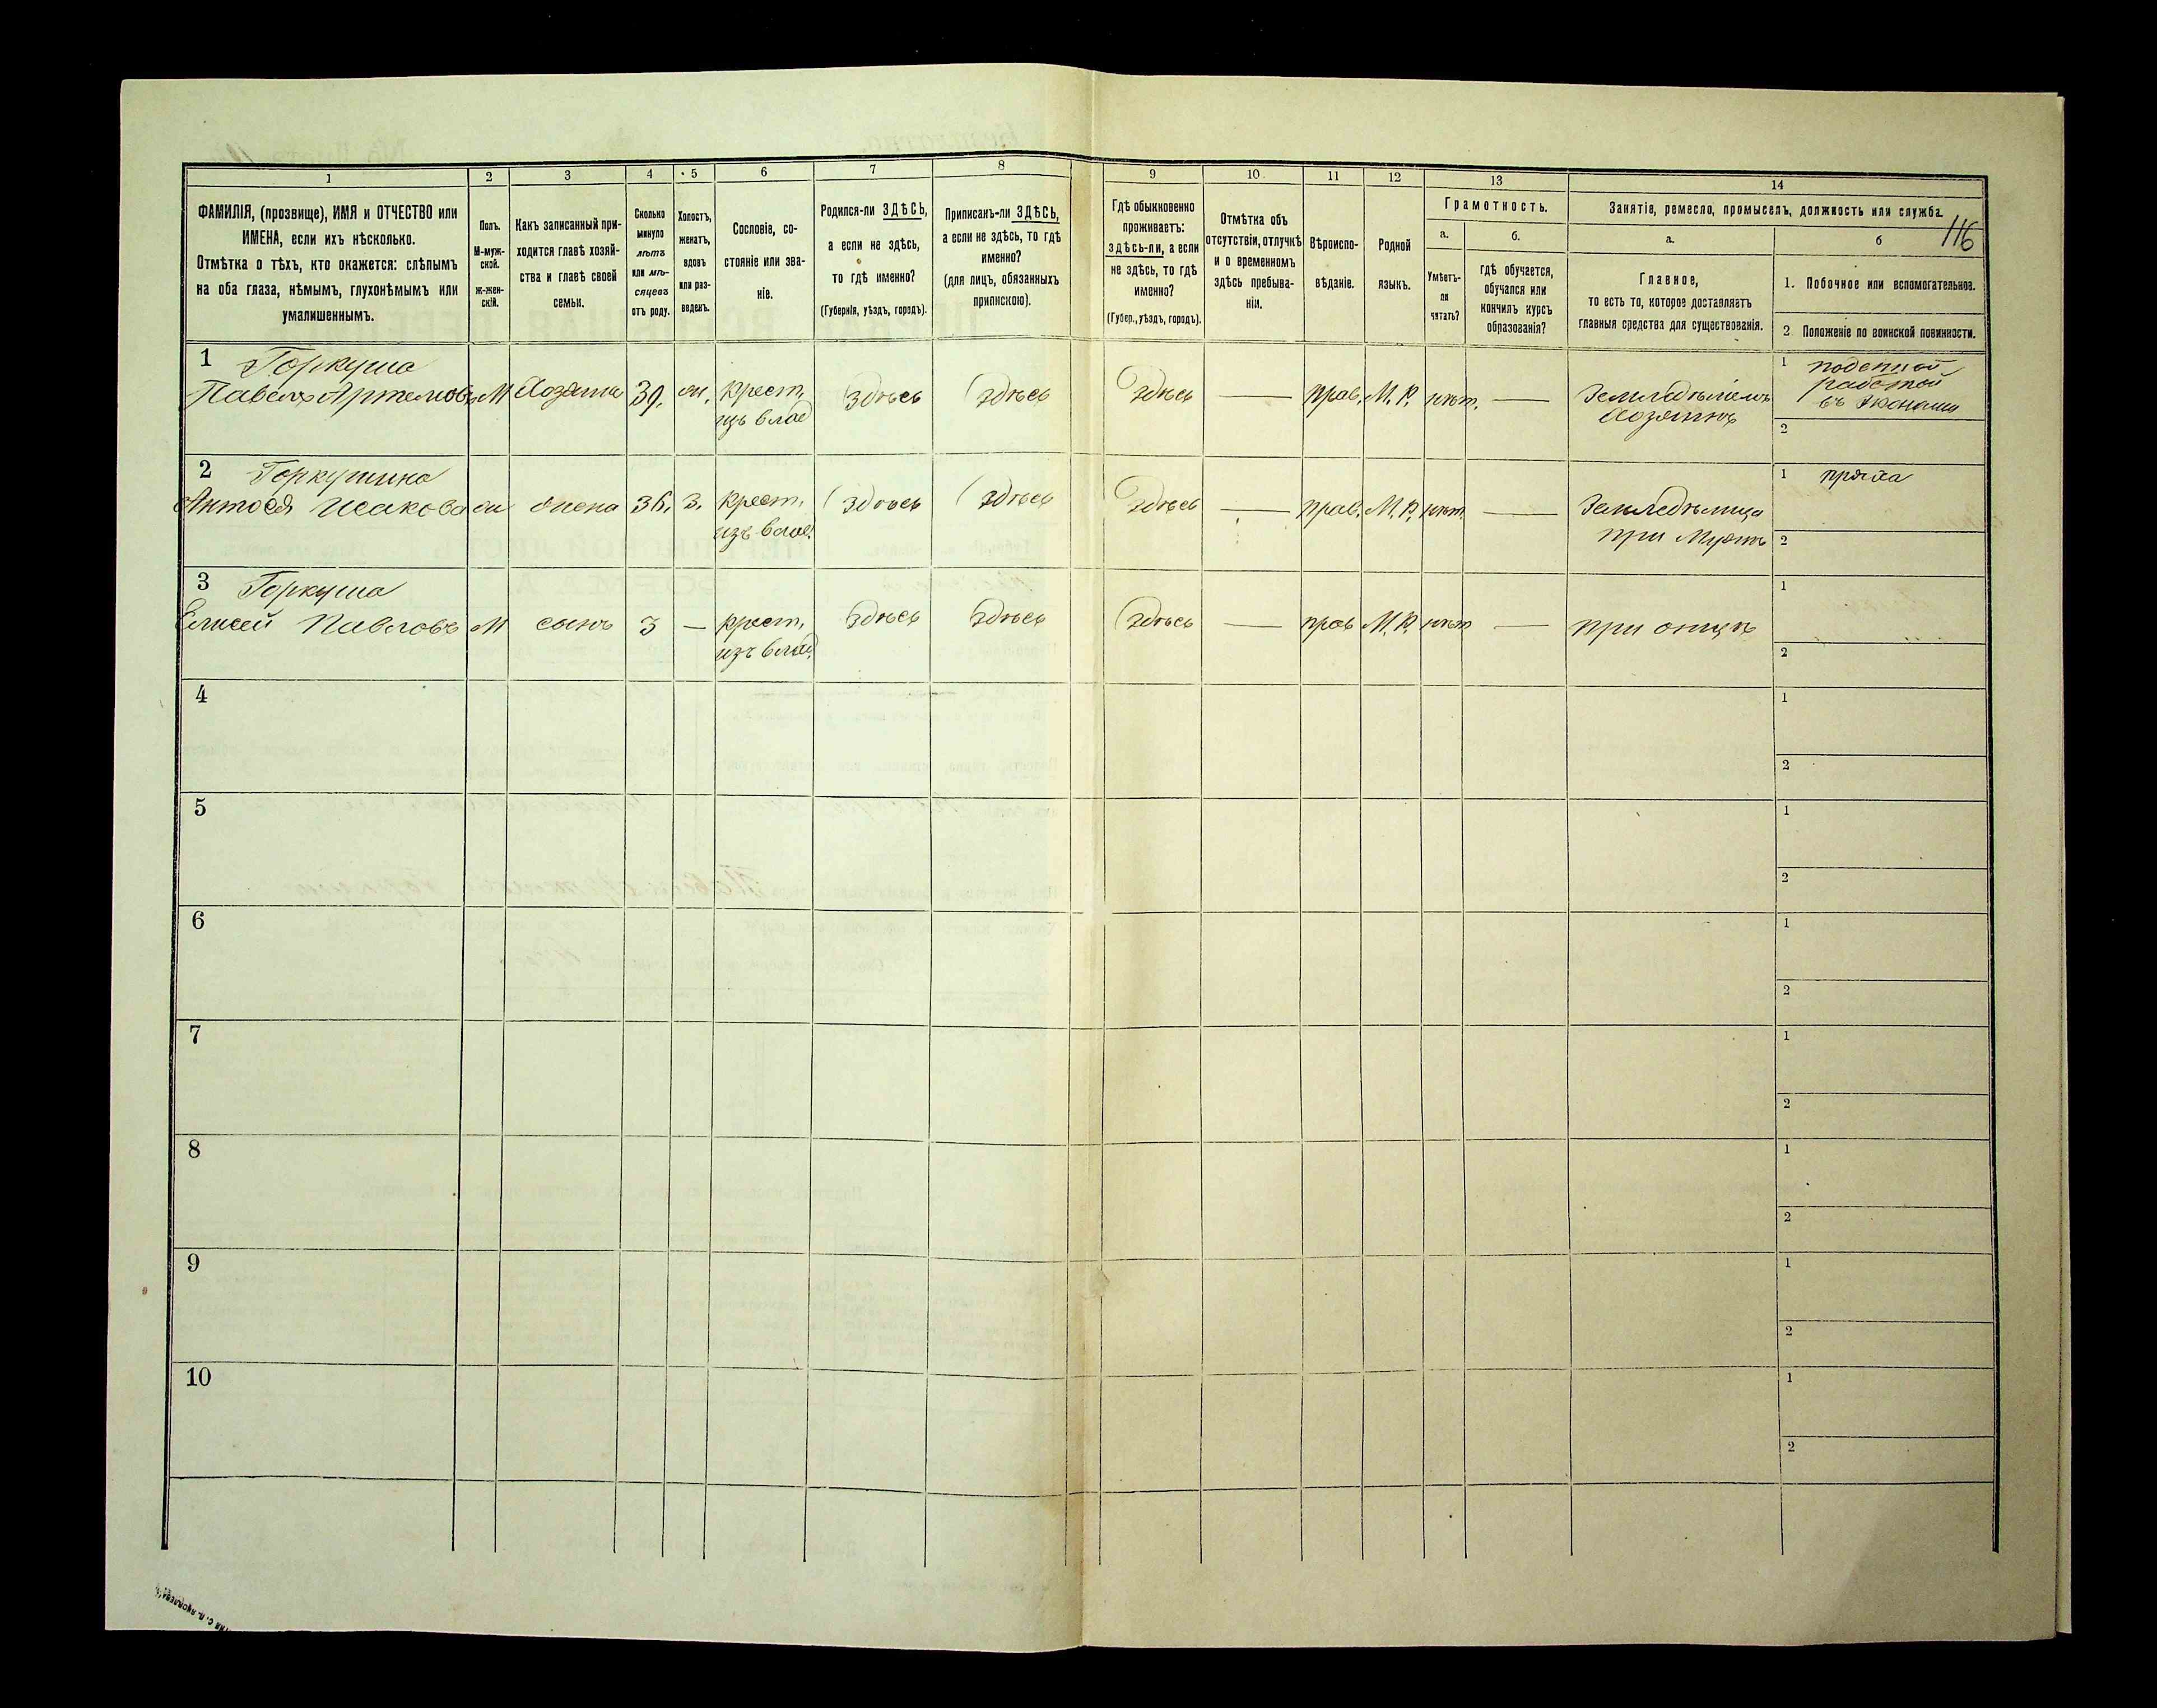 116
1
2
3
4
5
6
7
8
9
10
11
12
13
14
ФАМИЛІЯ, (прозвище), ИМЯ и ОТЧЕСТВО или
ИМЕНА, если ихъ нѣсколько.
Отмѣтка о тѣхъ, кто окажется: слѣпымъ
на оба глаза, нѣмымъ, глухонѣмымъ или
умалишеннымъ.
Полъ.
М-муж-
ской.
ж-жен-
скій.
Какъ записанный при-
ходится главѣ хозяй-
ства и главѣ своей
семьи.
Сколько
минуло
лѣтъ
или мѣ-
сяцевъ
отъ роду.
Холостъ,
женатъ,
вдовъ
или раз-
веденъ.
Сословіе, со-
стояніе или зва-
ніе.
Родился-ли ЗДѢСЬ,
а если не здѣсь,
то гдѣ именно?
(Губернія, уѣздъ, городъ).
Приписанъ-ли ЗДѢСЬ,
а если не здѣсь, то гдѣ
именно?
(для лицъ, обязанныхъ
припискою).
Гдѣ обыкновенно
проживаетъ:
здѣсь-ли, а если
не здѣсь, то гдѣ
именно?
(Губер., уѣздъ, городъ).
Отмѣтка объ
отсутствіи, отлучкѣ
и о временномъ
здѣсь пребыва-
ніи.
Вѣроиспо-
вѣданіе.
Родной
языкъ.
Грамотность.
а.
б.
Умѣетъ-
ли
читать?
гдѣ обучается,
обучался или
кончилъ курсъ
образованія?
Занятіе, ремесло, промыселъ, должность или служба.
а.
б
Главное,
то есть то, которое доставляетъ
главныя средства для существованія.
1. Побочное или вспомогательное.
2 Положеніе по воинской повинности.
1 Горкуша
Павелъ Артемовъ М Хозяинъ 39. ж. крест. здѣсь здѣсь здѣсь — прав. М. Р. нѣт. — Земледѣлецъ
изъ влад
Хозяинъ
1 поденной
работой
въ экономіи
2
2 Горкушина
Исакова ж жена 36. з. крест. здѣсь здѣсь здѣсь — прав. М. Р. нѣт. — Земледѣлица
изъ влад.
при Мужѣ
1 пряха
2
3 Горкуша
Елисей Павловъ М сынъ 3 — крест. здѣсь здѣсь здѣсь — прав М. Р. нѣт — при отцѣ
изъ влад.
1
2
4
1
2
5
1
2
6
1
2
7
1
2
8
1
2
9
1
2
10
1
2